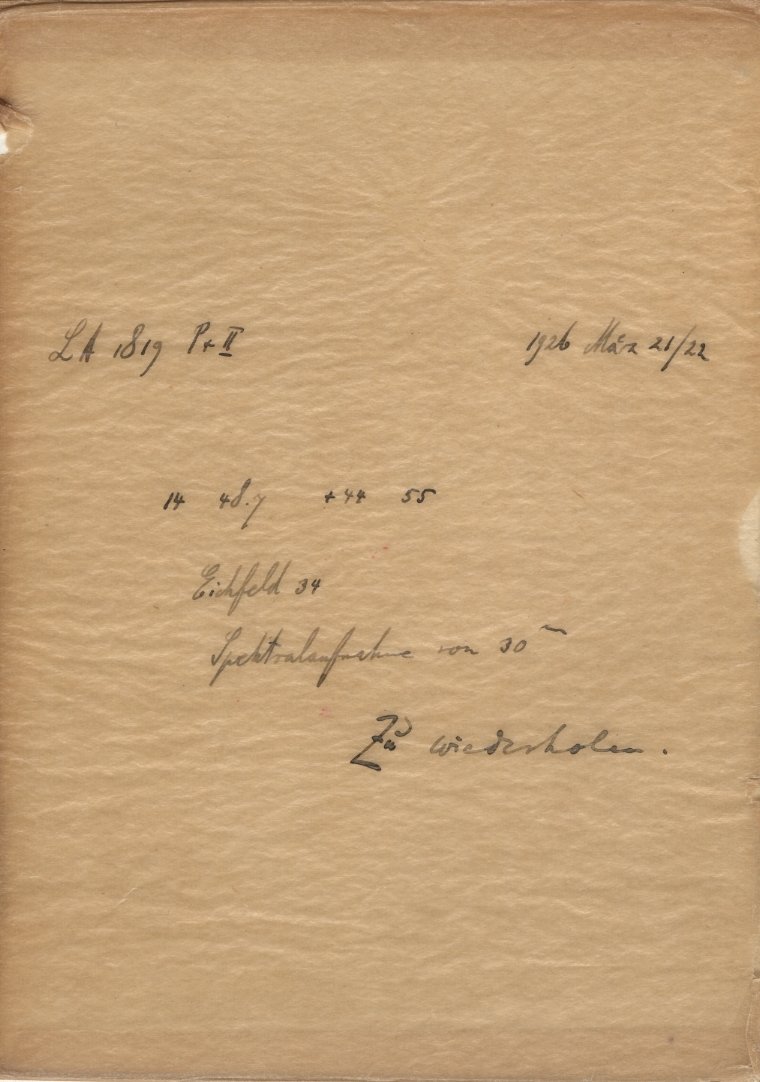 LA 1819 Pr II 1926 März 21/22
14 48.7 +44 55
Eichfeld 34
Spektralaufnahme von 30ᵐ
Zu wiederholen.